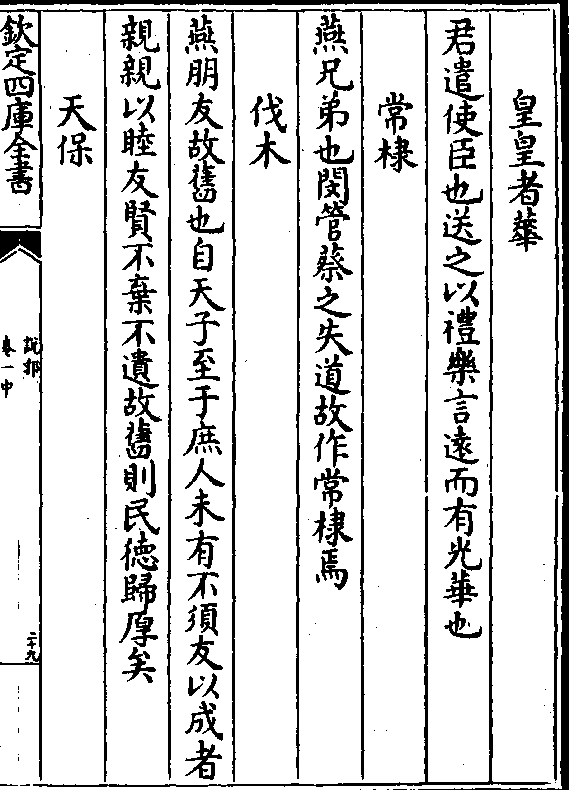 皇皇者華
君遣使臣也送之以禮樂言遠而有光華也
常棣
燕兄弟也閔管蔡之失道故作常棣焉
伐木
燕朋友故舊也自天子至于庶人未有不須友以成者
親親以睦友賢不棄不遺故舊則民德歸厚矣
天保
欽定四庫全書
說郛
卷一中
二十九